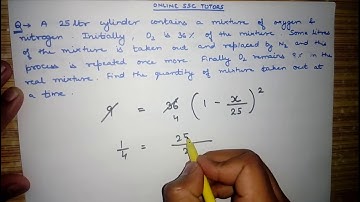 ONLINE SSC TUTORS
Q→ A 25 ltr cylinder contains a mixture of oxygen &
nitrogen. Initially, O₂ is 36% of the mixture. Some litres
of the mixture is taken out and replaced by N₂ and this
process is repeated once more. Finally O₂ remains 9% in the
real mixture. Find the quantity of mixture taken out at
a time.
9 = 36 (1 - x/25)²
4
1/4 = 25